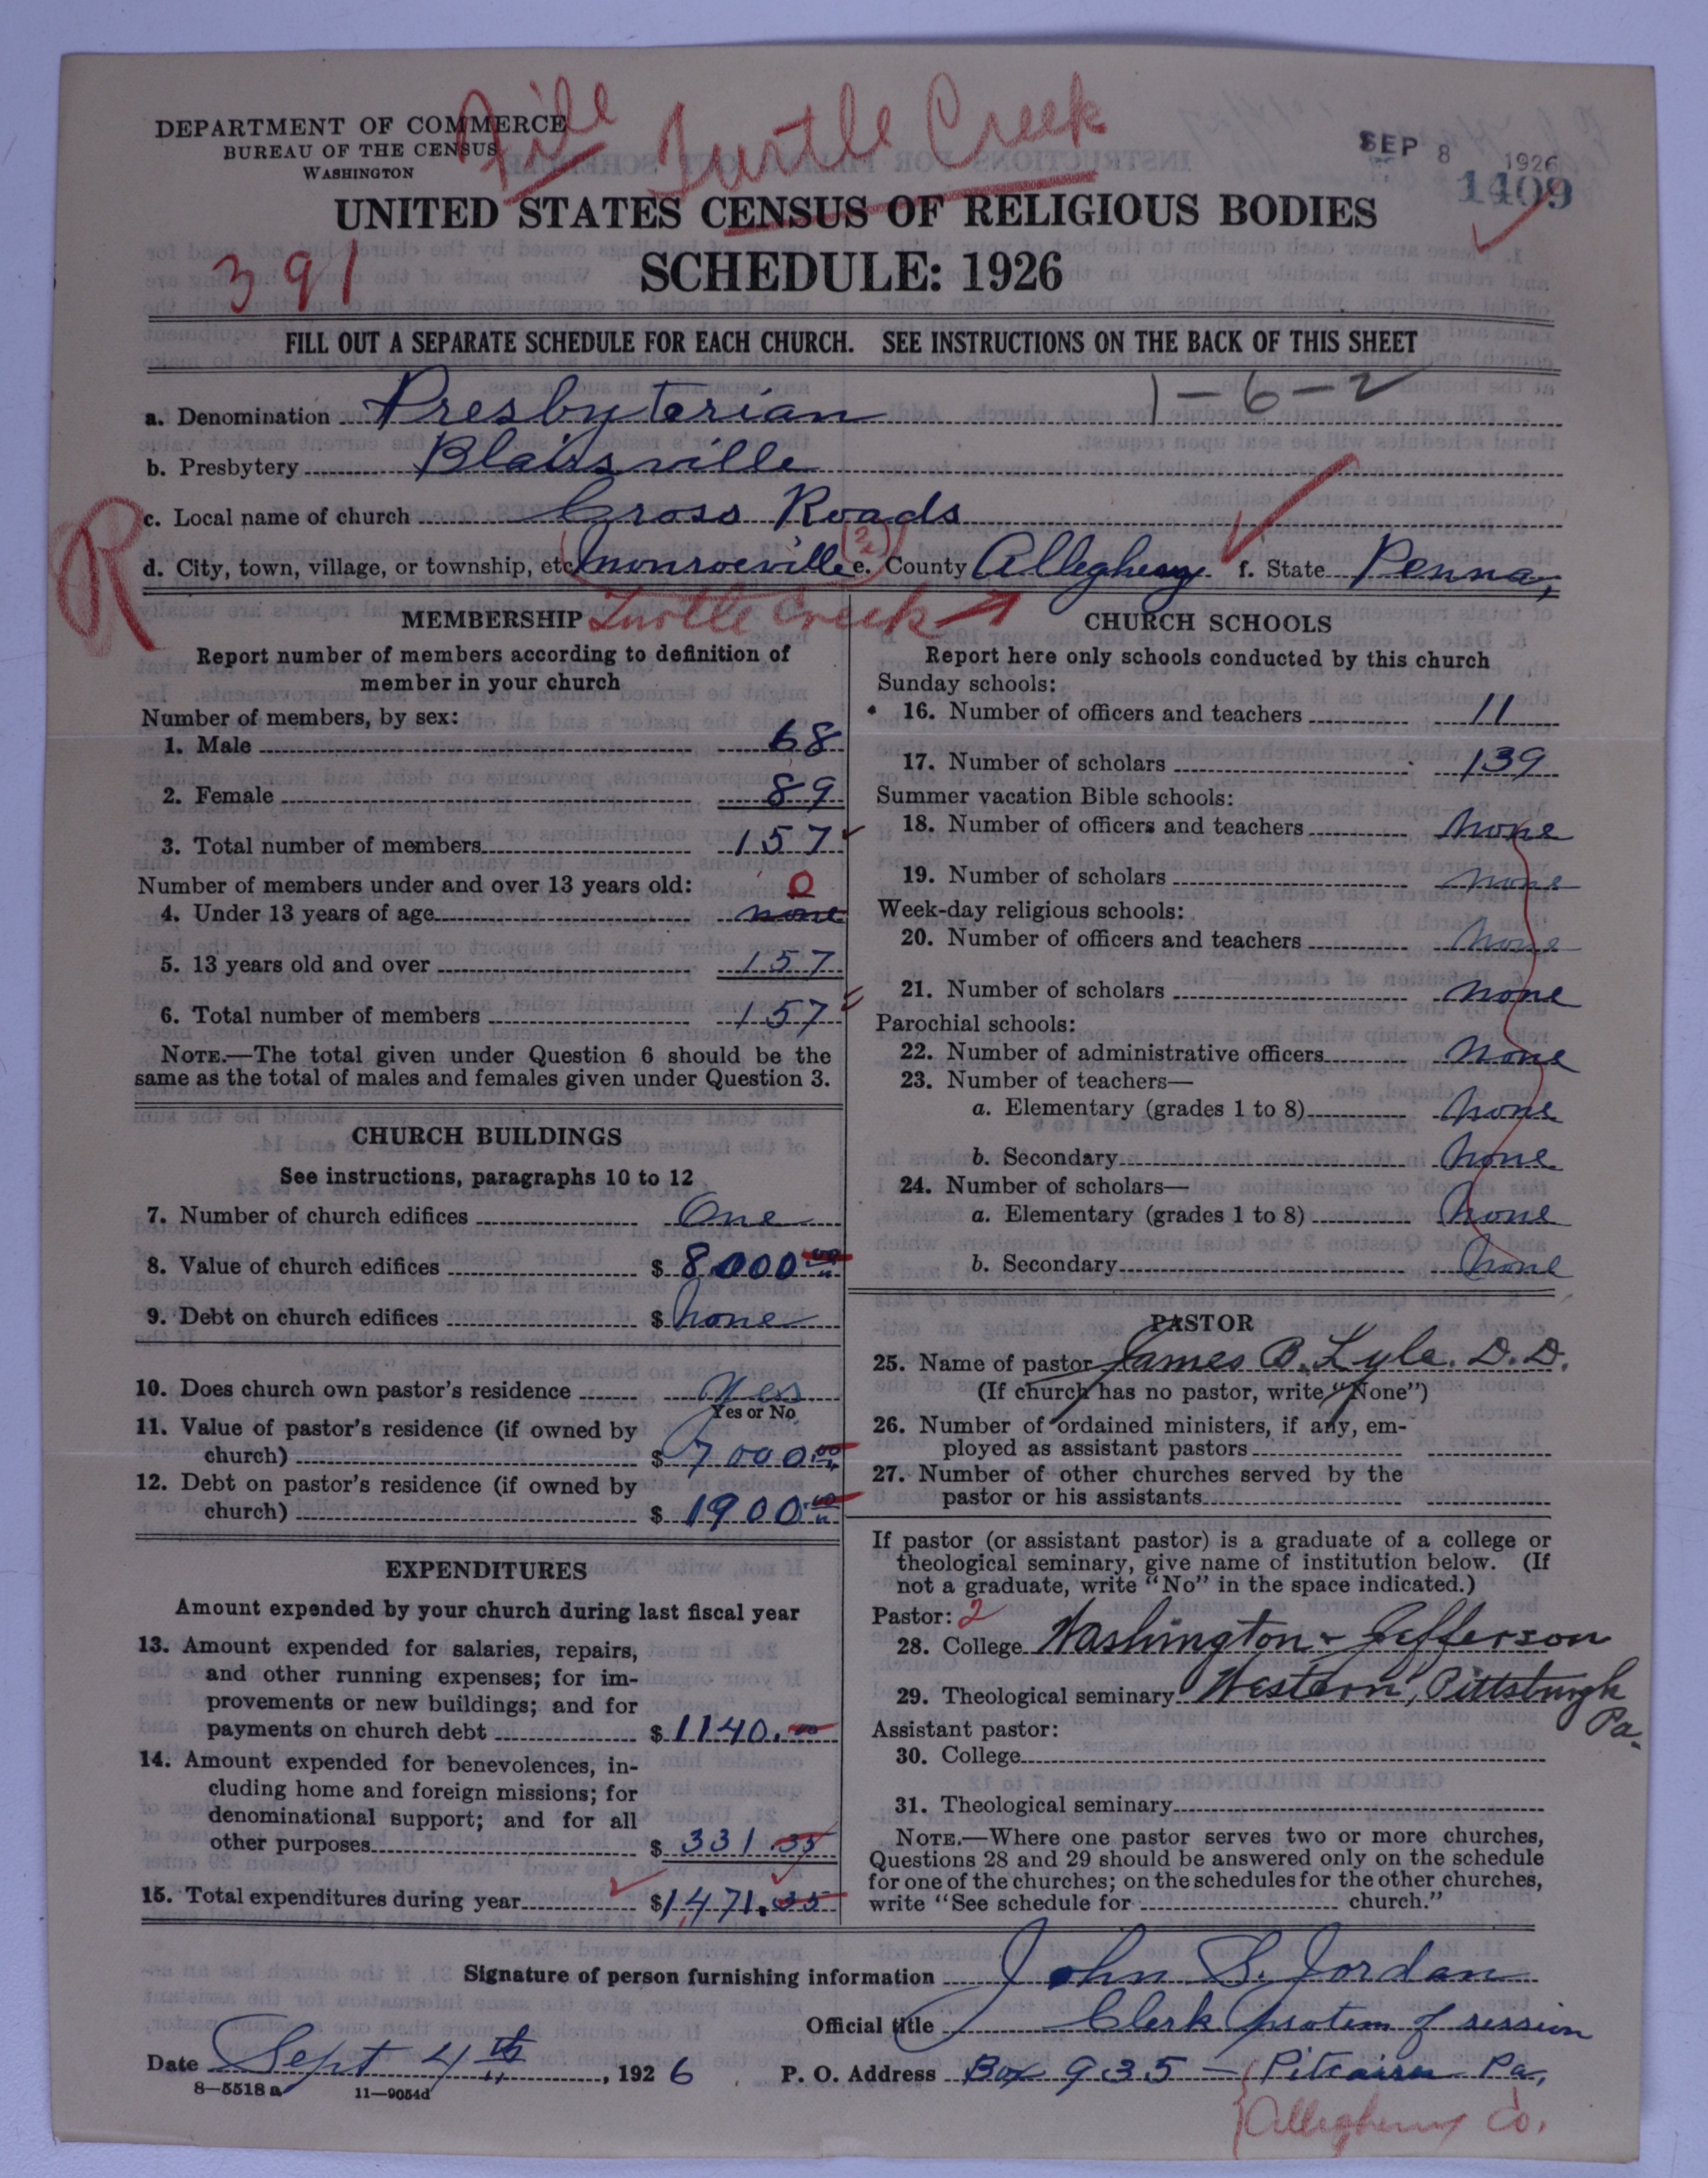 File Turtle Creek
DEPARTMENT OF COMMERCE
BUREAU OF THE CENSUS
WASHINGTON
SEP 8 1926
1409
UNITED STATES CENSUS OF RELIGIOUS BODIES
391
SCHEDULE: 1926
FILL OUT A SEPARATE SCHEDULE FOR EACH CHURCH. SEE INSTRUCTIONS ON THE BACK OF THIS SHEET
1-6-2
a. Denomination Presbyterian
b. Presbytery Blairsville
R
c. Local name of church Cross Roads
d. City, town, village, or township, etc Monroeville (2) e. County Allegheny f. State Penna,
Turtle Creek →
MEMBERSHIP
Report number of members according to definition of
member in your church
Number of members, by sex:
1. Male 68
2. Female 89
3. Total number of members 157
Number of members under and over 13 years old: 0
4. Under 13 years of age none
5. 13 years old and over 157
6. Total number of members 157
NOTE.—The total given under Question 6 should be the
same as the total of males and females given under Question 3.
CHURCH BUILDINGS
See instructions, paragraphs 10 to 12
7. Number of church edifices One
8. Value of church edifices $ 8000 00
9. Debt on church edifices $ None
10. Does church own pastor's residence Yes
Yes or No
11. Value of pastor's residence (if owned by
church) $ 7000 00
12. Debt on pastor's residence (if owned by
church) $ 1900 00
EXPENDITURES
Amount expended by your church during last fiscal year
13. Amount expended for salaries, repairs,
and other running expenses; for im-
provements or new buildings; and for
payments on church debt $ 1140.00
14. Amount expended for benevolences, in-
cluding home and foreign missions; for
denominational support; and for all
other purposes $ 331.35
15. Total expenditures during year $ 1471.35
CHURCH SCHOOLS
Report here only schools conducted by this church
Sunday schools:
16. Number of officers and teachers 11
17. Number of scholars 139
Summer vacation Bible schools:
18. Number of officers and teachers None
19. Number of scholars none
Week-day religious schools:
20. Number of officers and teachers None
21. Number of scholars none
Parochial schools:
22. Number of administrative officers none
23. Number of teachers—
a. Elementary (grades 1 to 8) None
b. Secondary None
24. Number of scholars—
a. Elementary (grades 1 to 8) None
b. Secondary None
PASTOR
25. Name of pastor James B. Lyle. D.D.
(If church has no pastor, write "None")
26. Number of ordained ministers, if any, em-
ployed as assistant pastors
27. Number of other churches served by the
pastor or his assistants
If pastor (or assistant pastor) is a graduate of a college or
theological seminary, give name of institution below. (If
not a graduate, write "No" in the space indicated.)
Pastor: 2
28. College Washington & Jefferson
29. Theological seminary Western, Pittsburgh
Pa.
Assistant pastor:
30. College
31. Theological seminary
NOTE.—Where one pastor serves two or more churches,
Questions 28 and 29 should be answered only on the schedule
for one of the churches; on the schedules for the other churches,
write "See schedule for church."
Signature of person furnishing information John S. Jordan
Official title Clerk protem of session
Date Sept 4th, 1926 P. O. Address Box 935 — Pitcairn Pa,
8—5518a 11—9054d
Allegheny Co.